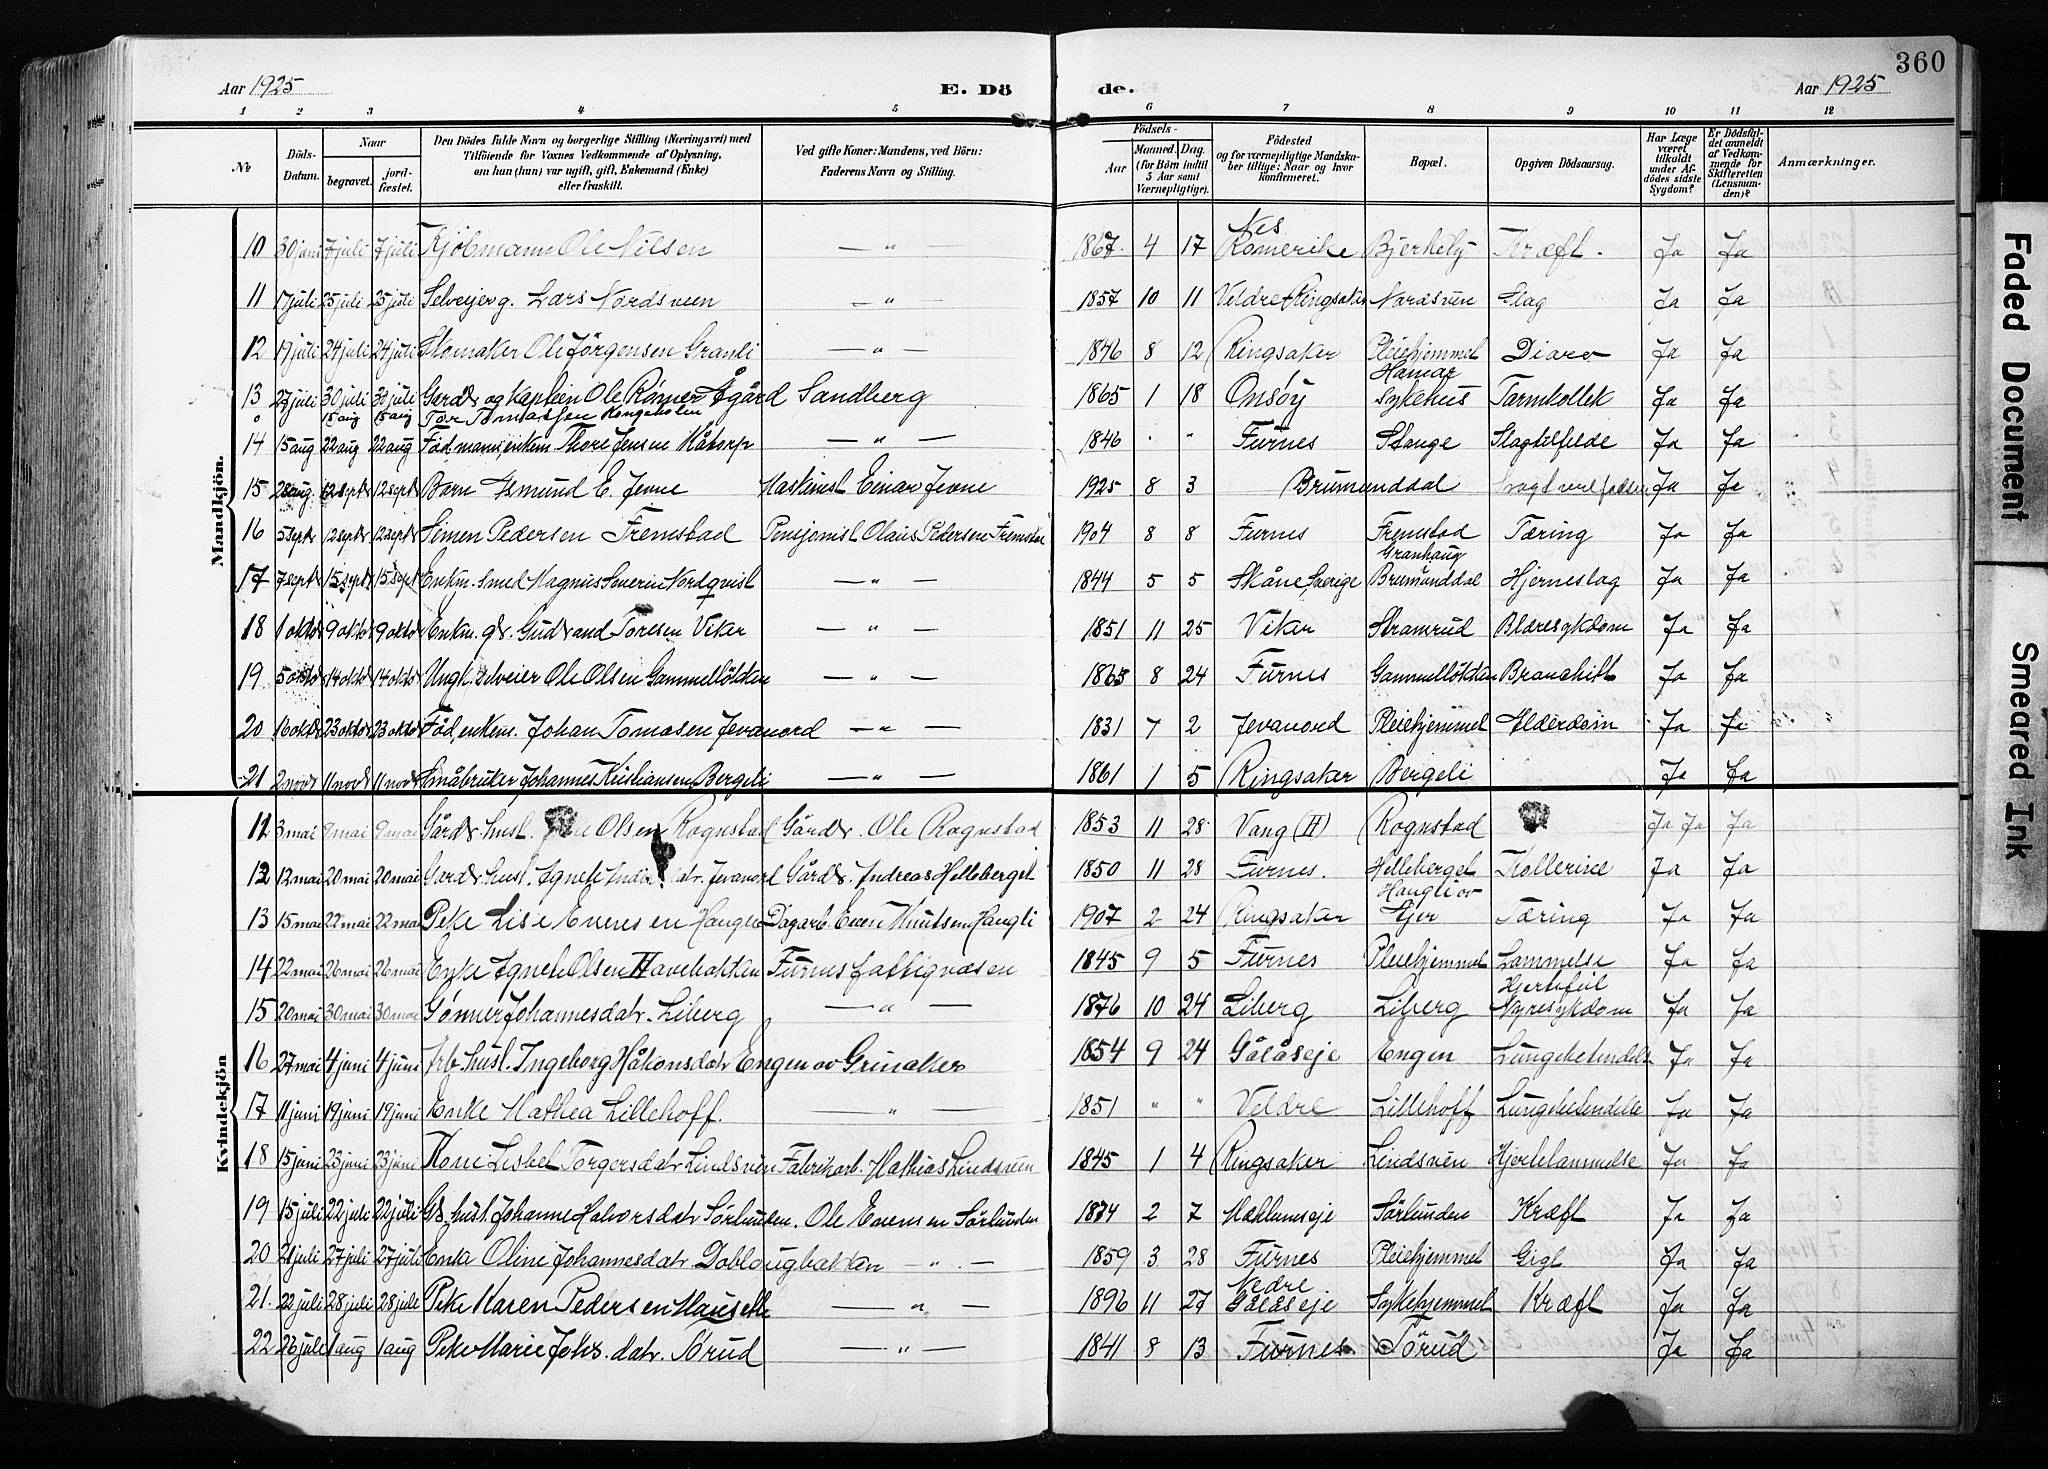 360
Aar 1925 E. Dö de. Aar 1925
1 2 3 4 5 6 7 8 9 10 11 12
No Döds-Datum. Naar begravet. jordfæstet. Den Dödes fulde Navn og borgerlige Stilling (Næringsvei) med Tilföiende for Voxnes Vedkommende af Oplysning, om han (hun) var ugift, gift, Enkemand (Enke) eller fraskilt. Ved gifte Koner: Mandens, ved Börn: Faderens Navn og Stilling. Födsels- Aar Maaned. Dag. (for Börn indtil 5 Aar samt Værnepligtige). Födested og for værnepligtige Mandskaber tillige: Naar og hvor konfirmeret. Bopæl. Opgiven Dödsaarsag. Har Læge været tilkaldt under Afdödes sidste Sygdom? Er Dödsfaldet anmeldt af Vedkommende for Skifteretten (Lensmanden)? Anmærkninger.
Mandkjön.
10 30 juni 7 juli 7 juli Kjöbmann Ole Nilsen — " — 1867 4 17 Nes Romerike Bjerkely Kræft. Ja Ja
11 17 juli 25 juli 25 juli Selveierg. Lars Nordsveen — " — 1857 10 11 Veldre Ringsaker Nordsven Slag Ja Ja
12 19 juli 24 juli 24 juli Skomaker Ole Jörgensen Granli — " — 1846 8 12 Ringsaker Pleiehjemmet Diare Ja Ja
13 27 juli 30 juli 30 juli Gardbr og kaptein Ole Rømer Ågård Sandberg 1865 1 18 Onsöy Hamar Sykehus Tarmkollek Ja Ja
o 15 aug 15 aug Tor Tomassen Kongsholen
14 15 aug 22 aug 22 aug Föd mann, enkem Thore Jensen Håtorp — " — 1846 . " Furnes Stange Slagtilfelde Ja Ja
15 28 aug. 12 sept 12 sept Barn Asmund E. Jevne Maskinist Einar Jevne 1925 8 3 Brumunddal Ja Ja
16 5 sept 12 sept 12 sept Simen Pedersen Fremstad Pensjonist Olaus Pedersen Fremstad 1904 8 8 Furnes Fremstad Tæring Ja Ja
17 7 sept 15 sept 15 sept Enkm. smed Magnus Severin Nordqvist — " — 1844 5 5 Skåne, Sverige Granhaug Brumunddal Hjerneslag Ja Ja
18 1 oktbr 9 oktbr 9 oktbr Enkm. gbr. Gudbrand Toresen Viker — " — 1851 11 25 Viker Stramrud Blæresykdom Ja Ja
19 5 oktbr 14 oktbr 14 oktbr Ungk. selveier Ole Olsen Gammellökken — " — 1865 8 24 Furnes Gammellökken Bronchitt Ja Ja
20 16 oktbr 23 oktbr 23 oktbr Föd, enkem. Johan Tomasen Jevanord — " — 1831 7 2 Jevanord Pleiehjemmet Alderdom Ja Ja
21 2 novbr 11 novbr 11 novbr Småbruker Johannes Kristiansen Bergeli — " — 1861 1 5 Ringsaker Bergeli Ja Ja
Kvindekjön
11 3 mai 9 mai 9 mai Gårdbr. hust. Olsen Rognstad Gårdbr. Ole Rognstad 1853 11 28 Vang (H) Rognstad Ja Ja Ja
12 12 mai 20 mai 20 mai Gardbr hust. Agnete datr. Jevanord Gårdbr. Andreas Helleberget 1850 11 28 Furnes. Helleberget Kollerine Ja Ja
13 15 mai 22 mai 22 mai Pike Lise Evensen Haugli Dagarb. Even Knutsen Haugli 1907 2 24 Ringsaker Haugli ov Tjer Tæring Ja Ja
14 22 mai 26 mai 26 mai Enke Agnete Olsen Havebakken Furnes fattigvæsen 1845 9 5 Furnes Pleiehjemmet Lammelse Ja Ja
15 20 mai 30 mai 30 mai Gønner Johannesdatr. Liberg — " — 1876 10 24 Liberg Liberg Hjertefeil Nyresykdom Ja Ja
16 27 mai 4 juni 4 juni Arb. hust. Ingeborg Håkonsdatr Engen ov Grinaker 1854 9 24 Gålåseje Engen Lungebetendelse Ja Ja
17 11 juni 19 juni 19 juni Enke Mathea Lillehoff. " — 1851 " " Veldre Lillehoff Lungebetendelse Ja Ja
18 15 juni 23 juni 23 juni Kone Lisbet Torgersdatr Lindsvén Fabrikarb. Mathias Lindsvén 1845 1 4 Ringsaker Lindsvén Hjertelammelse Ja Ja
19 15 juli 22 juli 22 juli Gb. hust. Johanne Halvorsdatr Sörlunden. Ole Evensen Sörlunden 1874 2 7 Mæhlumseje Sörlunden Kræft Ja Ja
20 21 juli 27 juli 27 juli Enke Oline Johannesdatr Doblougbakken — " — 1859 3 28 Furnes Pleiehjemmet Gigt Ja Ja
21 22 juli 28 juli 28 juli Pike Karen Pedersen Mausethe — " — 1896 11 27 Nedre Gålåseje Sykehjemmet Kræft Ja Ja
22 26 juli 1 aug 1 aug Pike Marie Johs. datr. Törud — " — 1841 8 13 Furnes Törud Ja Ja
Faded Document
Smeared Ink